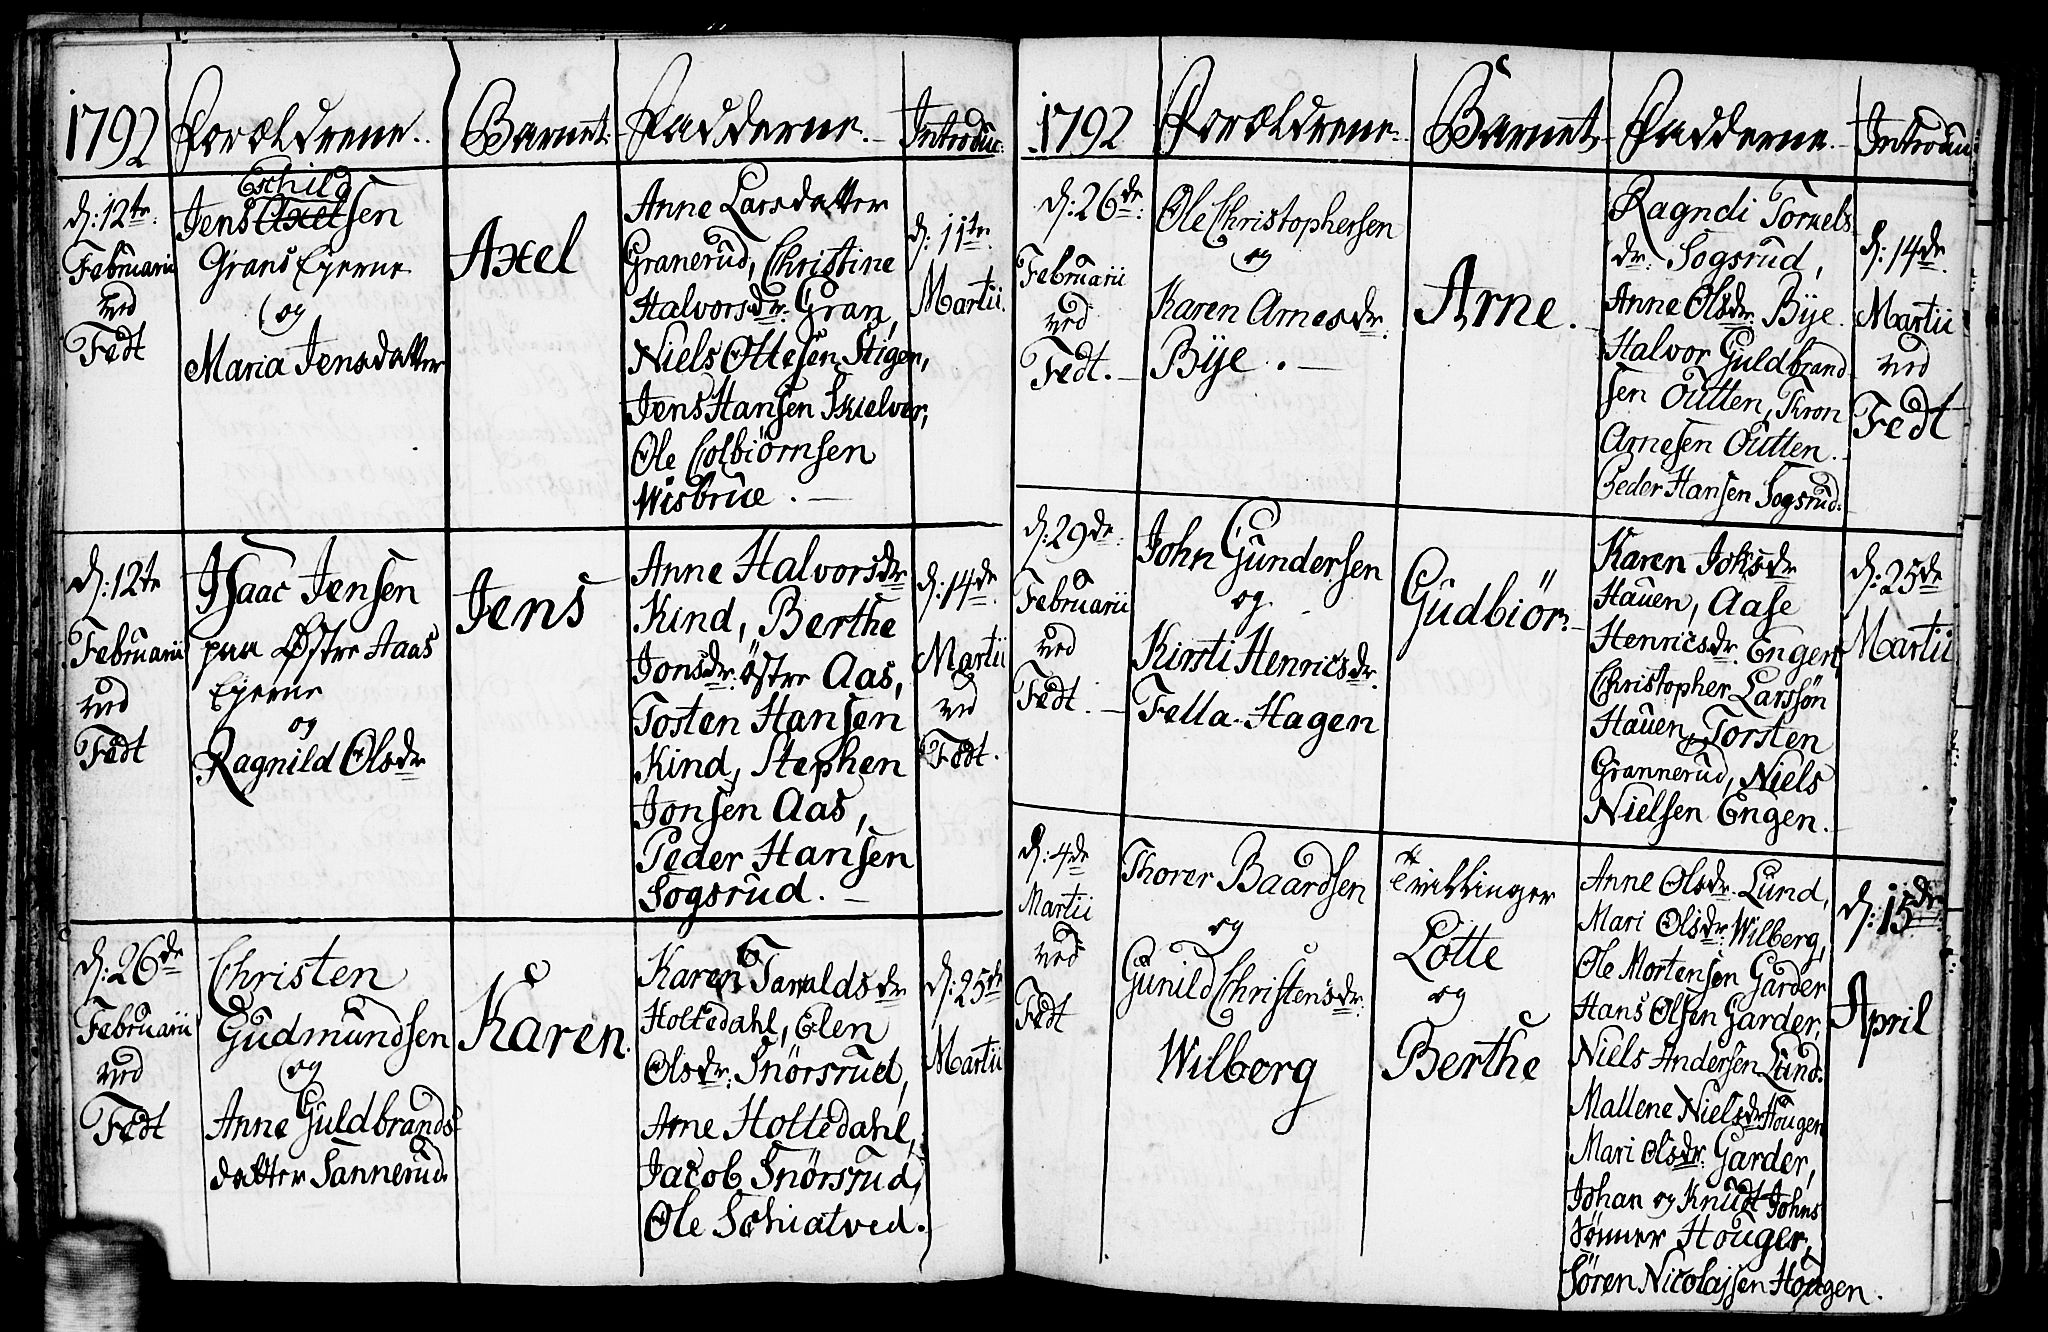 1792
Forældrene.
Barnet.
Fadderne.
Introduc:
d: 12te
Februarii
ved
Fedt
Eschild
Jens Axelsen
Grans Eyerne
og
Maria Jensdatter
Axel
Anne Larsdatter
Granerud, Christine
Halvorsdr: Gran,
Niels Ottesen Stigen,
Jens Hansen Skielver,
Ole Colbiörnsen
Wisbrue.
d: 11te
Martii.
d: 12te
Februarii
ved
Fedt
Isaac Jensen
paa Østre Aas
Eyerne
og
Ragnild Olsdr
Jens
Anne Halvorsdr
Kind, Berthe
Jonsdr: østre Aas,
Tosten Hansen
Kind, Stephen
Jonsen Aas,
Peder Hansen
Sogsrud.
d: 14de
Martii
ved
Fedt.
d: 26de
Februarii
ved
Fedt
Christen
Gudmundsen
og
Anne Guldbrands
datter Sannerud
Karen.
Karen Tavaldsdr
Holtedahl, Elen
Olsdr: Snörsrud,
Arne Holtedahl,
Jacob Snörsrud,
Ole Schiatved.
d: 25de
Martii
1792
Forældrene.
Barnet
Fadderne.
Introdu
d: 26de:
Februarii
ved
Fedt.
Ole Christophersen
og
Karen Arnesdr:
Bye.
Arne.
Ragndi Tornels
dr: Sogsrud,
Anne Olsdr: Bye.
Halvor Guldbrand
sen Outten, Tron
Arnesen Outten.
Peder Hansen Sogsrud.
d: 14de
Martii
ved
Fedt
d: 29de:
Februarii
ved
Fedt.
John Gundersen
og
Kirsti Henricsdr:
Fella-Hagen
Gudbiör.
Karen Joksdr
Hauen, Aase
Henricsdr: Engen,
Christopher Larssön
Hauen, Torsten
Grannerud, Niels
Nielsen Engen.
d: 25de
Martii
d: 4de
Martii
ved
Fedt
Thorer Baardsen
og
Gunild Christensdr:
Wilberg
Tvillinger
Lotte
og
Berthe
Anne Olsdr: Lund,
Mari Olsdr: Wilberg,
Ole Mortensen Garder
Hans Olsen Garder,
Niels Andersen Lund.
Mallene Nielsdr Hougen
Mari Olsdr: Garder,
Johan og Knudt Johns
Sönner Houger,
Sören Nicolajsen Hougen.
d: 15de
April